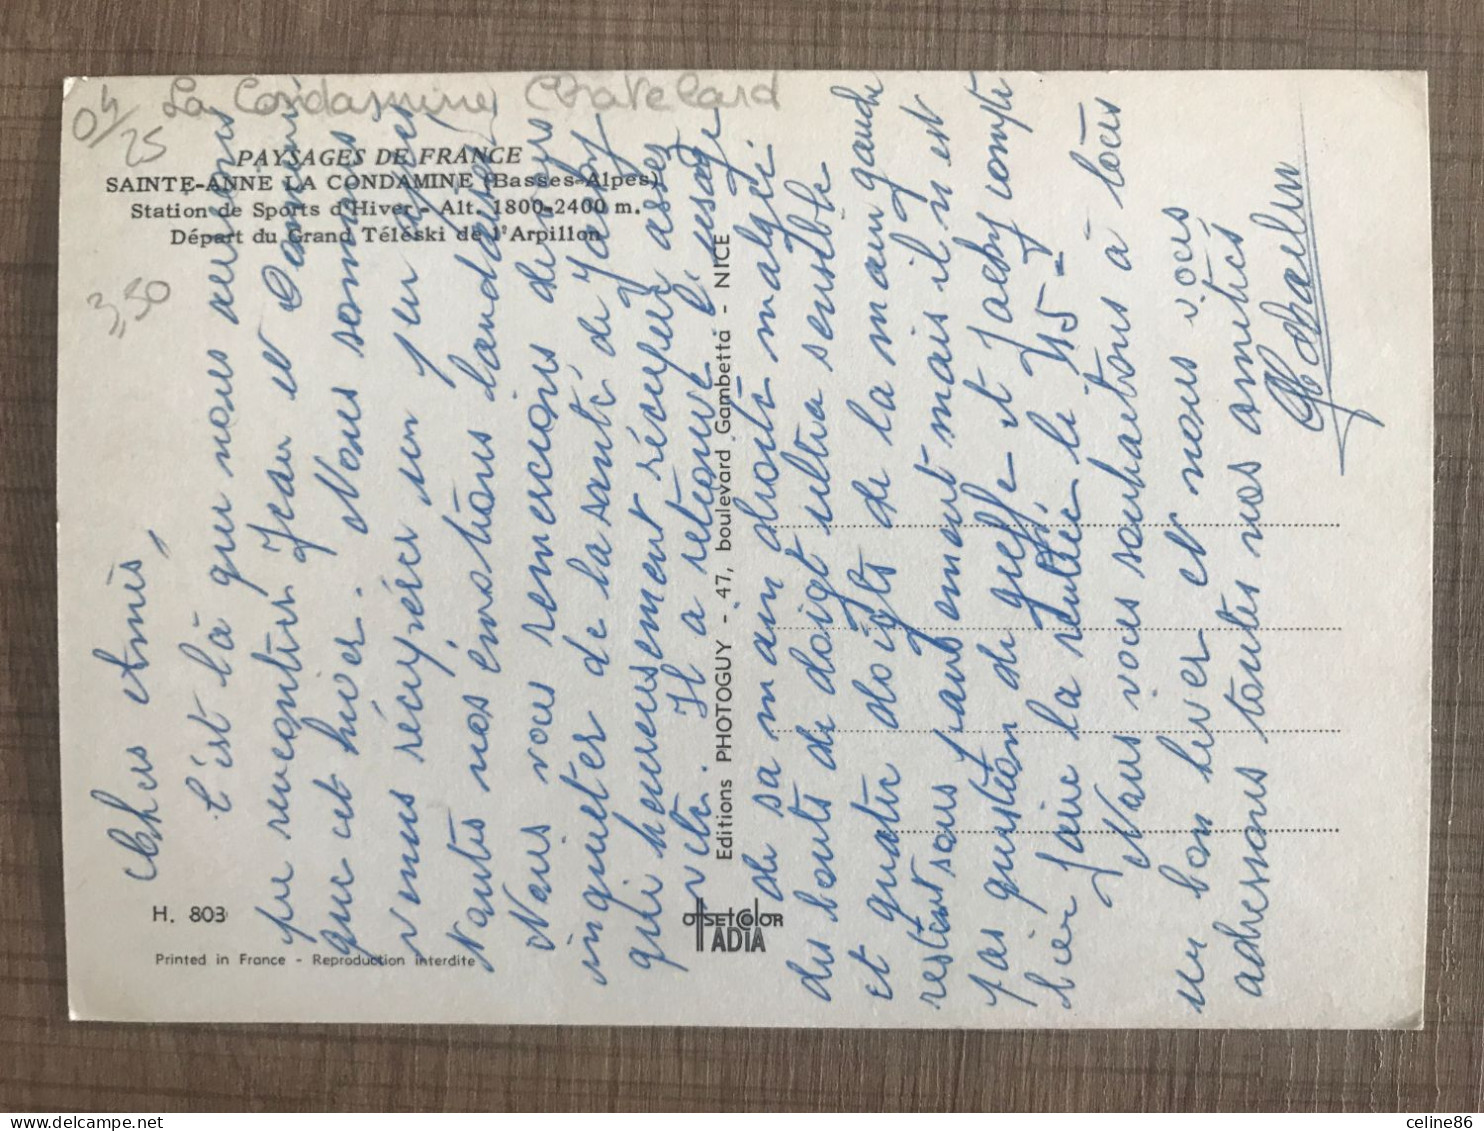 04/25
La Condamine Chatelard
PAYSAGES DE FRANCE
SAINTE-ANNE LA CONDAMINE (Basses-Alpes)
Station de Sports d'Hiver - Alt. 1800-2400 m.
Départ du Grand Téléski de l'Arpillon
3,50
H. 803
Printed in France - Reproduction interdite
Editions PHOTOGUY - 47, boulevard Gambetta - NICE
offsetcolor
ADIA
Chers Amis,
C'est là que nous avons
pu rencontrer Jean et
que cet hiver. Nous sommes
venus récupérer un peu après
toutes nos émotions landaises
Nous vous remercions de vous
inquiéter de la santé de Jacky
qui heureusement récupère assez
vite. Il a retrouvé l'usage
de sa main droite malgré
des bouts de doigt ultra sensible
et quatre doigts de la main gauche
restent sans mais il n'est
pas question de greffe et Jacky compte
bien faire la rentrée le 15 -
Nous vous souhaitons à tous
un bon hiver et nous vous
adressons toutes nos amitiés